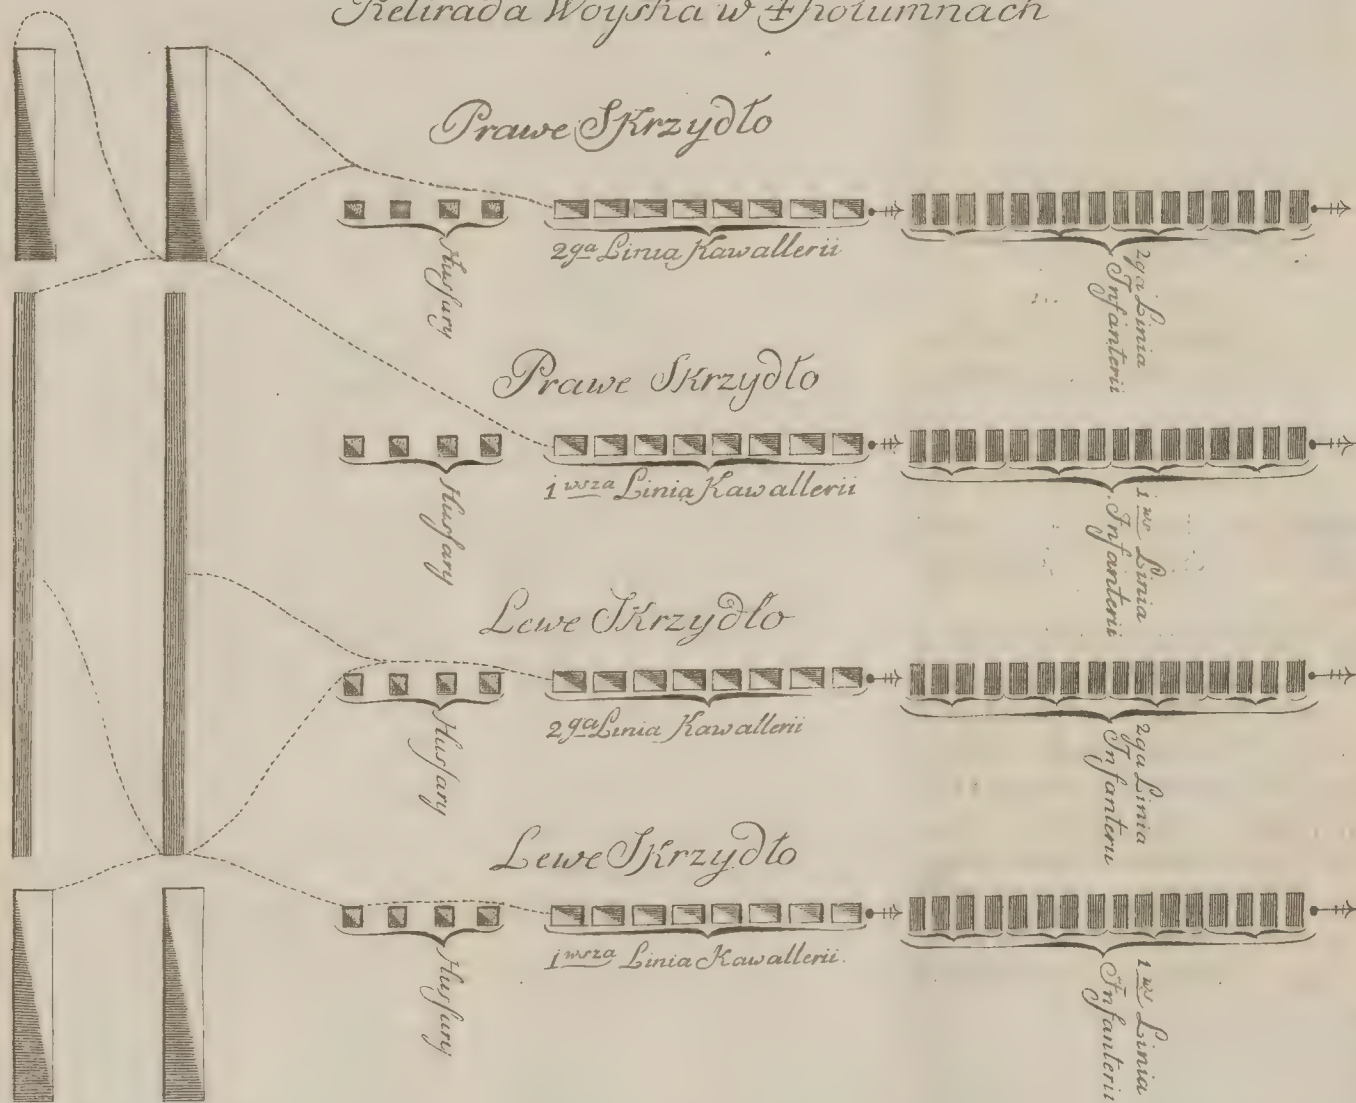 Retirada Woyska w 4 Kolumnach
Prawe Skrzydło
Husary
2ga Linia Kawallerii
2ga Linia
Infanterii
Prawe Skrzydło
Husary
1wsza Linia Kawallerii
1ws Linia
Infanterii
Lewe Skrzydło
Husary
2ga Linia Kawallerii
2ga Linia
Infanterii
Lewe Skrzydło
Husary
1wsza Linia Kawallerii.
1ws Linia
Infanterii